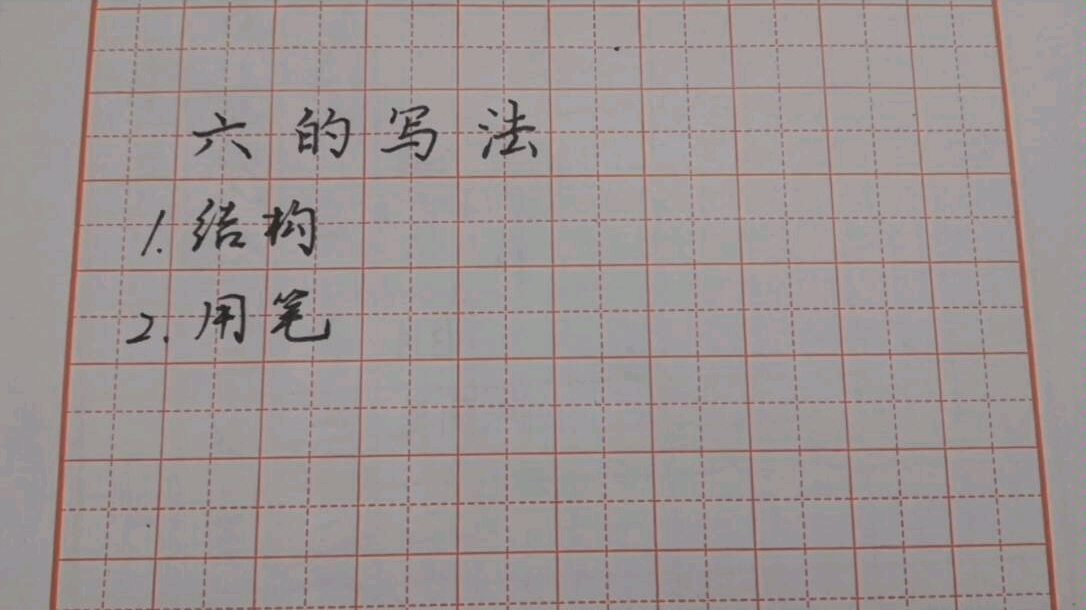 六的写法
1.结构
2.用笔